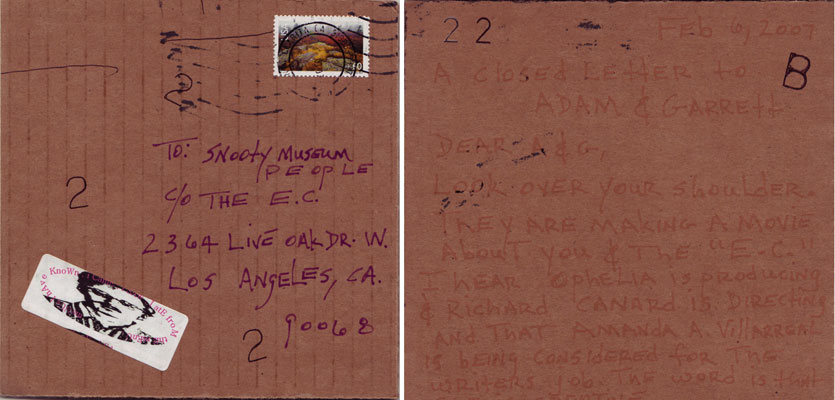 2
To: SNOOTY MUSEUM
PEOPLE
c/o THE E.C.
2
2364 LIVE OAK DR. W.
LOS ANGELES, CA.
90068
2
KnoWn
22
FEB 6, 2007
B
A CLOSED LETTER to
ADAM & GARRETT
DEAR A & G,
LOOK OVER YOUR SHOULDER.
THEY ARE MAKING A MOVIE
ABOUT YOU & THE "E.C."
I HEAR OPHELIA IS PRODUCING
& RICHARD CANARD IS DIRECTING
AND THAT AMANDA A VILLARREAL
IS BEING CONSIDERED FOR THE
WRITERS JOB. THE WORD IS that